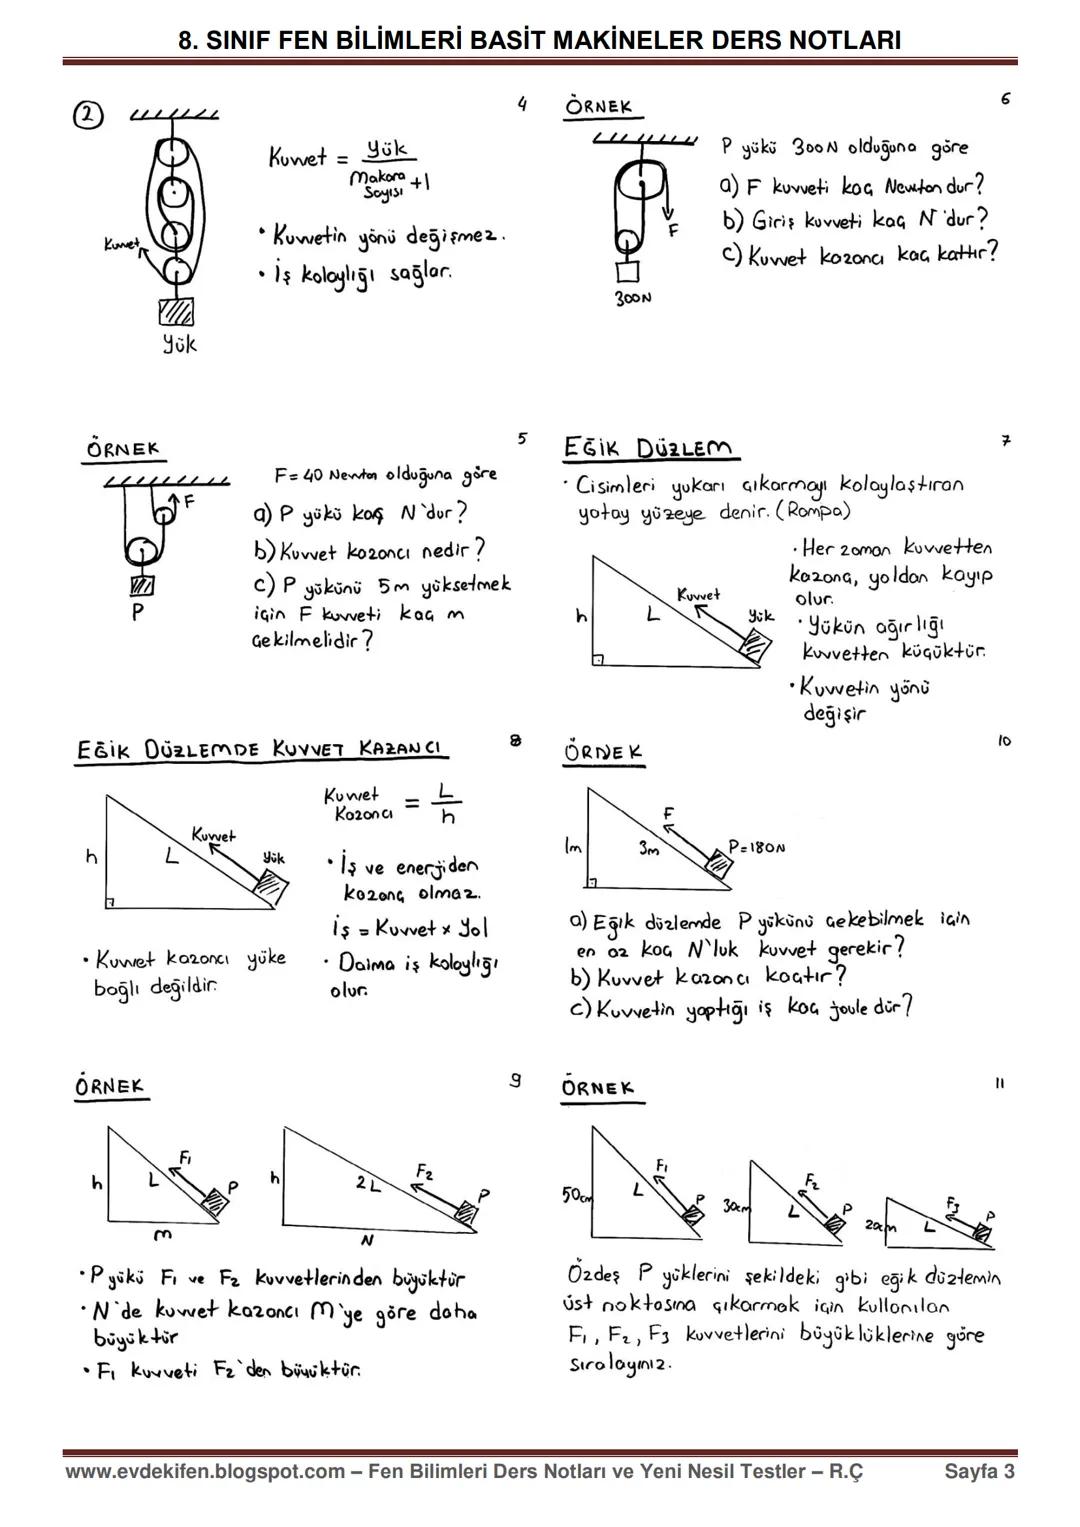 8. SINIF FEN BİLİMLERİ BASİT MAKİNELER DERS NOTLARI
2
4
Kuvvet = Yük
Makara Sayısı +1
• Kuvvetin yönü değişmez.
• İş kolaylığı sağlar.
Kuvvet
Yük
ÖRNEK
6
P yükü 300N olduğuna göre
a) F kuvveti kaç Newtondur?
b) Giriş kuvveti kaç N'dur?
c) Kuvvet kazancı kaç kattır?
F
300N
ÖRNEK
5
F=40 Newton olduğuna göre
a) P yükü kaç N'dur?
b) Kuvvet kazancı nedir?
c) P yükünü 5m yükseltmek
için F kuvveti kaç m
çekilmelidir?
F
P
EĞİK DÜZLEM
7
• Cisimleri yukarı çıkarmayı kolaylaştıran
yatay yüzeye denir. (Rampa)
• Her zaman kuvvetten
kazanç, yoldan kayıp
olur.
• Yükün ağırlığı
kuvvetten küçüktür.
• Kuvvetin yönü
değişir
h
L
Kuvvet
Yük
EĞİK DÜZLEMDE KUVVET KAZANCI
8
Kuvvet Kazancı = L
h
• İş ve enerjiden
kazanç olmaz.
İş = Kuvvet x Yol
• Daima iş kolaylığı
olur.
h
L
Kuvvet
Yük
• Kuvvet kazancı yüke
bağlı değildir.
ÖRNEK
10
1m
3m
F
P=180N
a) Eğik düzlemde P yükünü çekebilmek için
en az kaç N'luk kuvvet gerekir?
b) Kuvvet kazancı kaçtır?
c) Kuvvetin yaptığı iş kaç joule dür?
ÖRNEK
9
h
L
F1
P
m
h
2L
F2
P
N
• P yükü F1 ve F2 kuvvetlerinden büyüktür
• N'de kuvvet kazancı M'ye göre daha
büyüktür
• F1 kuvveti F2'den büyüktür.
ÖRNEK
11
50cm
L
F1
P
30cm
L
F2
P
20cm
L
F3
P
Özdeş P yüklerini şekildeki gibi eğik düzlemin
üst noktasına çıkarmak için kullanılan
F1, F2, F3 kuvvetlerini büyüklüklerine göre
sıralayınız.
www.evdekifen.blogspot.com – Fen Bilimleri Ders Notları ve Yeni Nesil Testler – R.Ç
Sayfa 3